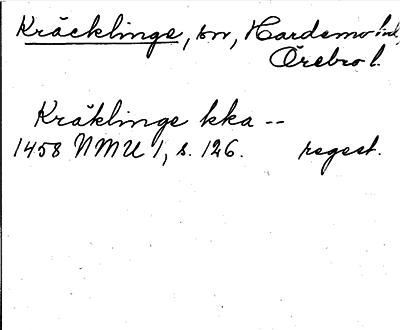 Kräcklinge, sn, Hardemo hd,
Örebro l.
Kräklinge kka --
1458 NMU 1, s. 126. regest.